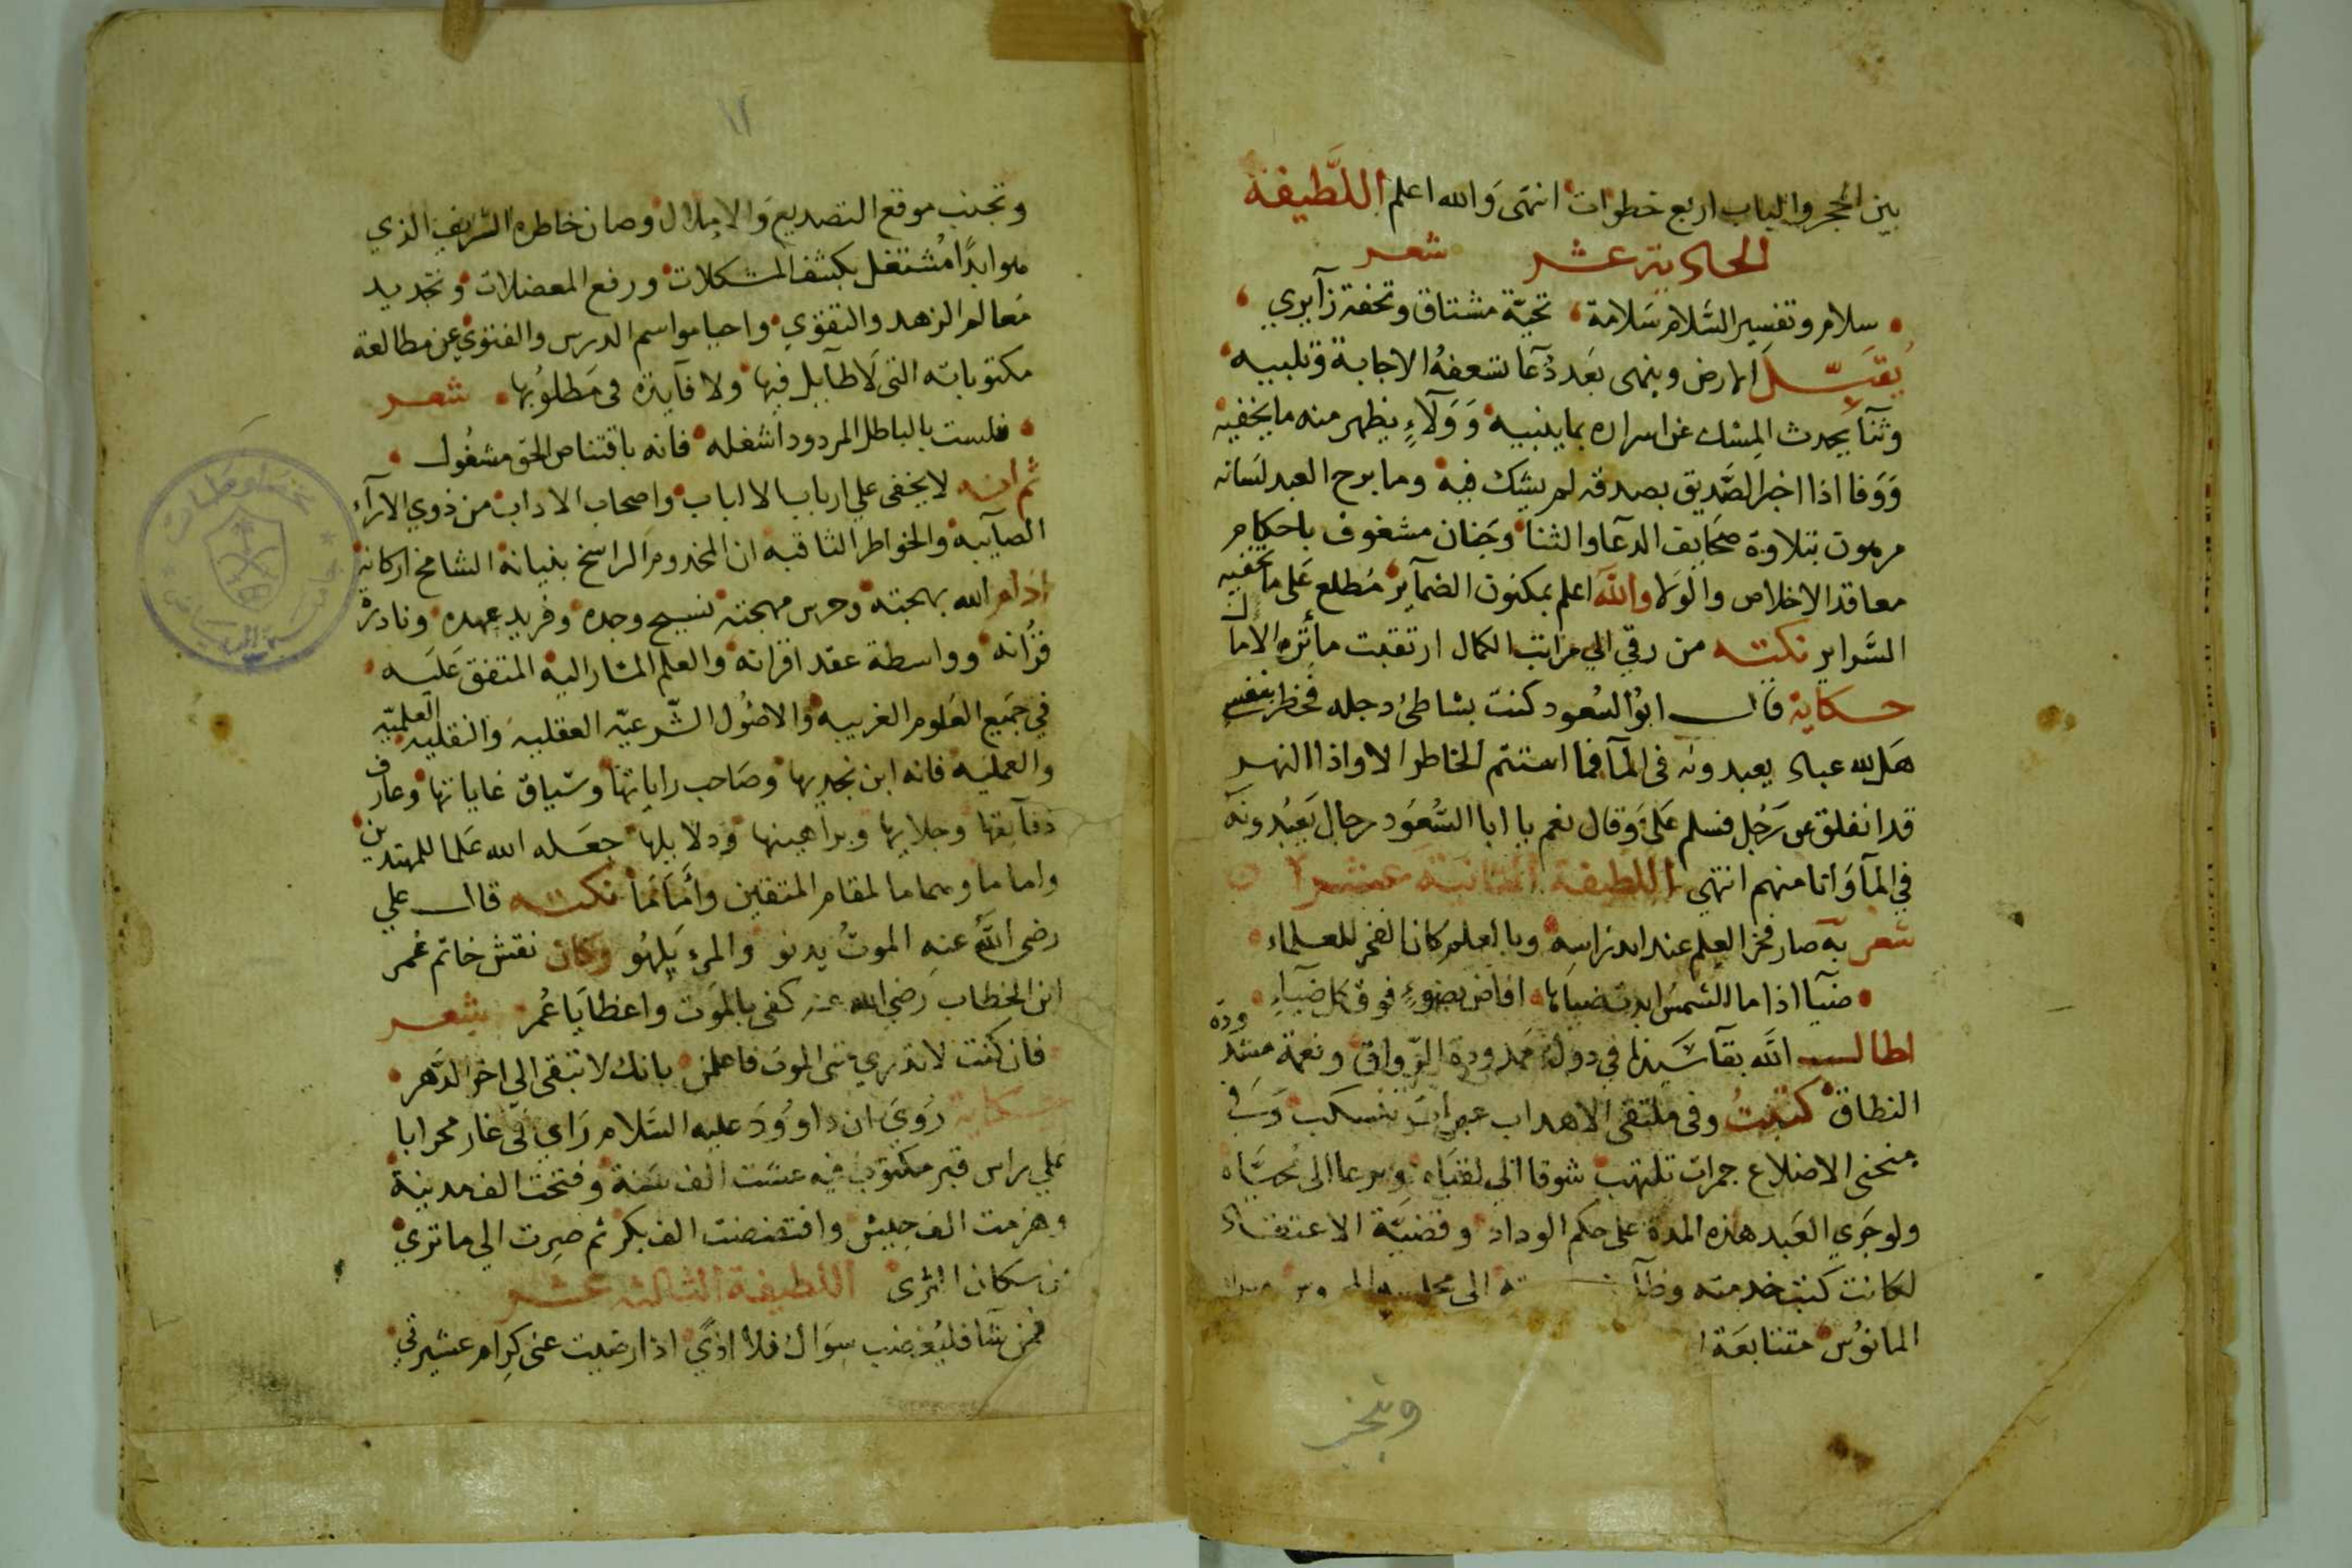 بين الحجر والباب اربع خطوات انتهى والله اعلم اللطيفة
الحادية عشر شعر
سلام وتفسير السلام سلامة تحية مشتاق وتحفة زايري
يقبل الارض وينهى بعد دعا تسعفه الاجابة وتلبيه
وثنا يحدث المسك عن اسراره بما يبديه وولاء يظهر منه ما يخفيه
ووفا اذا اخبر الصديق بصدقه لم يشك فيه وما برح العبد لسانه
مرهون بتلاوة صحايف الدعا والثنا وجنان مشغوف باحكام
معاقد الاخلاص والولا والله اعلم بمكنون الضماير مطلع على ما تخفيه
السراير نكته من رقي الي مراتب الكمال ارتقبت مأثره الاما ل
حكاية قال ابو السعود كنت بشاطئ دجله فخطر بنفسي
هل لله عباد يعبدونه في المآ فما استتم الخاطر الا واذا النهر
قد انفلق عن رجل فسلم علي وقال نعم يا ابا السعود رجال يعبدونه
في المآ وانا منهم انتهي اللطيفة الثانية عشر
شعر به صار فخر العلم عند اندراسه وبالعلم كان الفخر للعلماء
ضيآ اذا ما الشمس ابدت ضياها افاض بضوء فوق كل ضياء
اطال الله بقآ سيدنا في دولة ممدودة الرواق ونعمة مشدودة
النطاق كتبت وفى ملتقى الاهداب عبرات تنسكب وفي
منحنى الاضلاع جمرات تلتهب شوقا الي لقياه ونزعا الى محياه
ولو جري العبد هذه المدة على حكم الوداد وقضية الاعتقاد
لكانت كتب خدمته
المانوس متتابعة
وتجنب
وتجنب موقع التصديع والاملال وصان خاطره الشريف الذي
هو ابدا مشتغل بكشف المشكلات ورفع المعضلات وتجديد
معالم الزهد والتقوي واحيا مواسم الدرس والفتوي عن مطالعة
مكتوباته التي لا طايل فيها ولا فايدة في مطلوبها شعر
فلست بالباطل المردود اشغله فانه باقتناص الحق مشغول
ثم انه لا يخفى علي ارباب الالباب واصحاب الاداب من ذوي الارآء
الصآيبه والخواطر الثاقبه ان المخدوم الراسخ بنيانه الشامخ اركانه
ادام الله بهجته وحرس مهجته نسيج وحده وفريد عهده ونادرة
قرانه وواسطة عقد اقرانه والعلم المشار اليه المتفق عليه
في جميع العلوم الغريبه والاصول الشرعيه العقليه والنقليه العلميه
والعمليه فانه ابن نجديها وصاحب راياتها وسباق غاياتها وعارف
دقايقها وجلايها وبراهينها ودلايلها جعله الله علما للمهتدين
واماما وهماما لمقام المتقين وأمانما نكته قال علي
رضى الله عنه الموت يدنو والمرء يلهو وكان نقش خاتم عمر
ابن الخطاب رضي الله عنه كفى بالموت واعظا يا عمر شعر
فان كنت لا تدري متى الموت فاعلمن بانك لا تبقى الي اخر الدهر
حكاية روي ان داوود عليه السلام راي في غار محرابا
علي راس قبر مكتوب فيه عشت الف سنة وفتحت الف مدينة
وهزمت الف جيش وافتضضت الف بكر ثم صرت الي ما تري
من سكان الثرى اللطيفة الثالثة عشر
فمن شا فليغضب سواك فلا اذي اذا رضيت عنى كرام عشيرتي